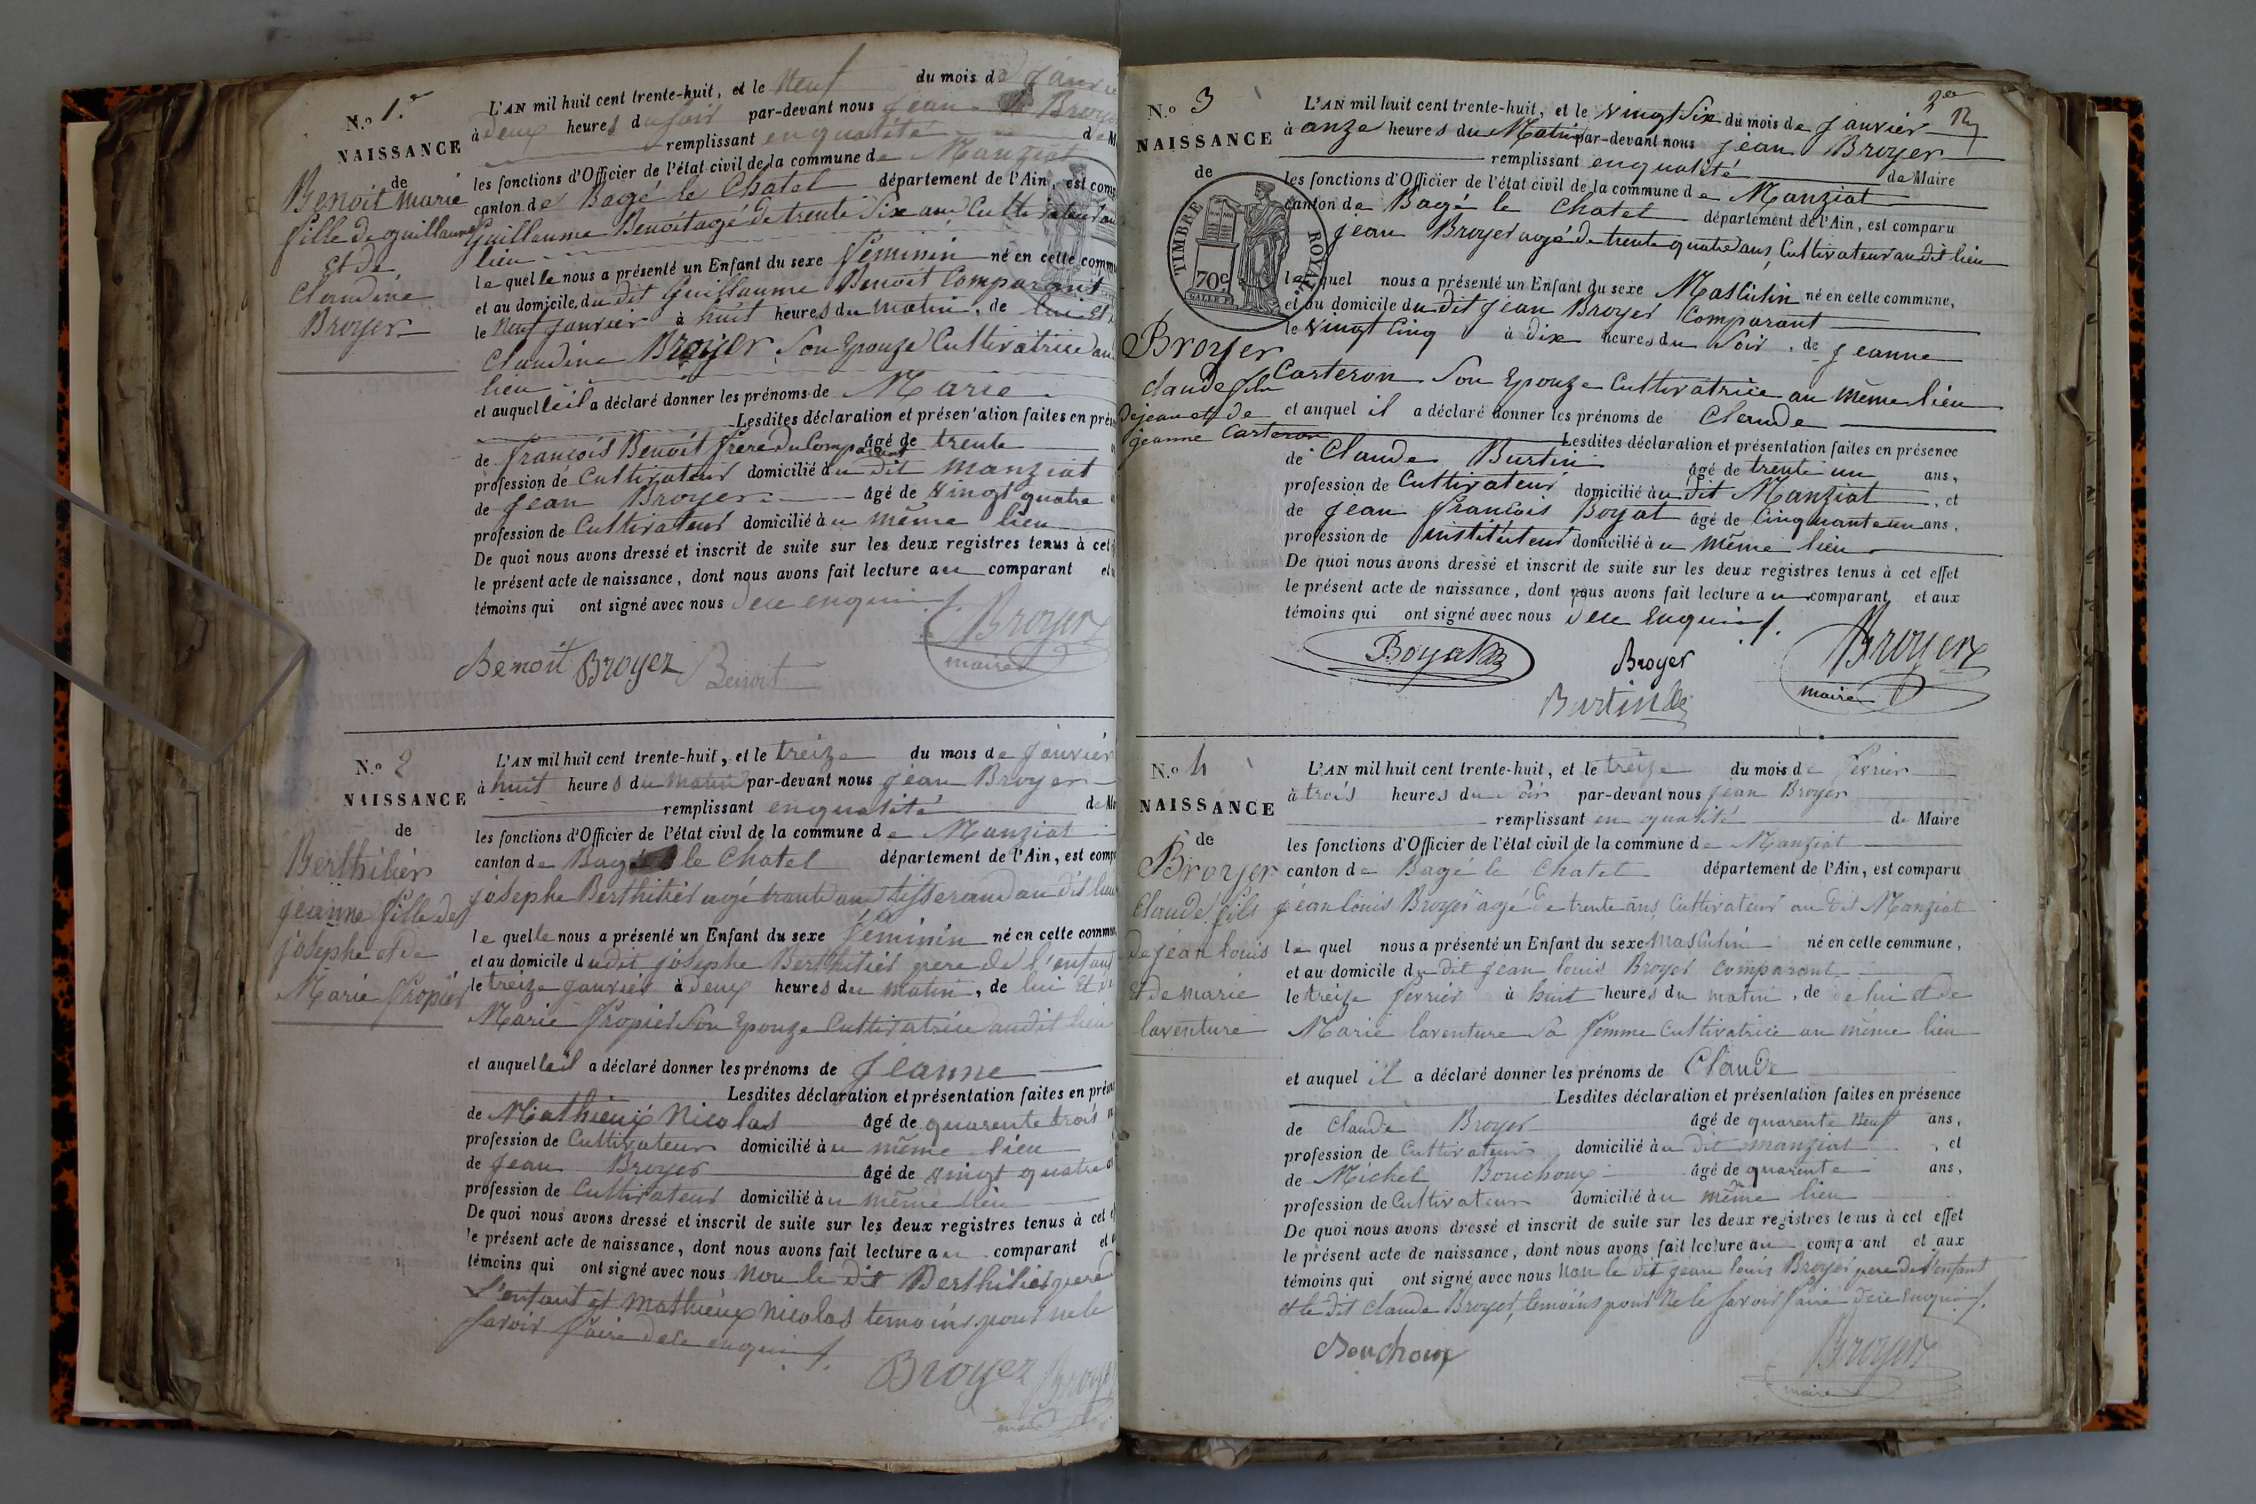 N.o 1.er
NAISSANCE
de
Benoit Marie
fille de guillaume
et de
Claudine
Broyer
L'AN mil huit cent trente-huit, et le neuf du mois de Janvie
à deux heures du soir par-devant nous jean Broyer
remplissant en qualité de M
les fonctions d'Officier de l'état civil de la commune de Manziat
canton de Bagé le Chatel département de l'Ain, est comp
Guillaume Benoit agé de trente Six ans Cultivateur au
lieu
le quel le nous a présenté un Enfant du sexe féminin né en cette commu
et au domicile du dit Guillaume Benoit Comparant
le Neuf janvier à huit heures du matin, de lui et
Claudine Broyer Son Epouze Cultivatrice au
lieu
et auquelle il a déclaré donner les prénoms de Marie
Lesdites déclaration et présentation faites en prés
de françois Benoit frere du Comparant âgé de trente
profession de Cultivateur domicilié au dit Manziat
de Jean Broyer âgé de vingt quatre
profession de Cultivateur domicilié à u même lieu
De quoi nous avons dressé et inscrit de suite sur les deux registres tenus à cet
le présent acte de naissance, dont nous avons fait lecture au comparant et
témoins qui ont signé avec nous dece enquis
Benoit Broyer Benoit Broyer
maire
N.o 2
NAISSANCE
de
Berthilier
jeanne fille de
josephe et de
Marie Propier
L'AN mil huit cent trente-huit, et le treize du mois de janvier
à huit heures du matin par-devant nous jean Broyer
remplissant en qualité de M
les fonctions d'Officier de l'état civil de la commune de Manziat
canton de Bagé le Chatel département de l'Ain, est comp
josephe Berthilier agé trente ans tisserand au dit lieu
le quel le nous a présenté un Enfant du sexe féminin né en cette commu
et au domicile du dit josephe Berthilier pere de l'enfant
le treize janvier à deux heures du matin, de lui et
Marie Propier Son Epouze Cultivatrice audit lieu
et auquelle il a déclaré donner les prénoms de jeanne
Lesdites déclaration et présentation faites en prése
de Mathieux Nicolas âgé de quarente trois
profession de Cultivateur domicilié à u même lieu
de Jean Broyer âgé de vingt quatre
profession de Cultivateur domicilié à u même lieu
De quoi nous avons dressé et inscrit de suite sur les deux registres tenus à cet
le présent acte de naissance, dont nous avons fait lecture au comparant et
témoins qui ont signé avec nous non le dit Berthilier pere de
L'enfant et Mathieux Nicolas temoins pour ne le
savoir faire dece enquis
Broyer Broyer
N.o 3
NAISSANCE
de
TIMBRE ROYAL
70c
Broyer
claude fils
de jean et de
jeanne Carteron
L'AN mil huit cent trente-huit, et le vingt Six du mois de janvier
à onze heures du Matin par-devant nous jean Broyer
remplissant en qualité de Maire
les fonctions d'Officier de l'état civil de la commune de Manziat
canton de Bagé le Chatel département de l'Ain, est comparu
jean Broyer agé de trente quatre ans, Cultivateur au dit lieu
le quel nous a présenté un Enfant du sexe Masculin né en cette commune,
et au domicile du dit jean Broyer Comparant
le vingt Cinq à dix heures du Soir, de jeanne
Carteron Son Epouze Cultivatrice au même lieu
et auquel il a déclaré donner les prénoms de Claude
Lesdites déclaration et présentation faites en présence
de Claude Burtin âgé de trente un ans,
profession de Cultivateur domicilié au dit Manziat, et
de jean francois Boyat âgé de Cinquante un ans,
profession de instituteur domicilié à u même lieu
De quoi nous avons dressé et inscrit de suite sur les deux registres tenus à cet effet
le présent acte de naissance, dont nous avons fait lecture au comparant et aux
témoins qui ont signé avec nous dece Enquis
Boyat Broyer Broyer
Burtin maire
N.o 4
NAISSANCE
de
Broyer
Claude fils
de jean louis
et de marie
laventure
L'AN mil huit cent trente-huit, et le treize du mois de fevrier
à trois heures du Soir par-devant nous jean Broyer
remplissant en qualité de Maire
les fonctions d'Officier de l'état civil de la commune de Manziat
canton de Bagé le Chatel département de l'Ain, est comparu
jean louis Broyer agé de trente ans, Cultivateur au dit Manziat
le quel nous a présenté un Enfant du sexe masculin né en cette commune,
et au domicile du dit jean louis Broyer comparant
le treize fevrier à huit heures du matin, de de lui et de
Marie laventure Sa femme Cultivatrice au même lieu
et auquel il a déclaré donner les prénoms de Claude
Lesdites déclaration et présentation faites en présence
de Claude Broyer âgé de quarente neuf ans,
profession de Cultivateur domicilié au dit manziat, et
de Michel Bouchoux âgé de quarente ans,
profession de Cultivateur domicilié à u même lieu
De quoi nous avons dressé et inscrit de suite sur les deux registres tenus à cet effet
le présent acte de naissance, dont nous avons fait lecture au comparant et aux
témoins qui ont signé avec nous non le dit jean louis Broyer pere de l'enfant
et le dit claude Broyer, temoins pour ne le savoir faire dece Enquis
Bouchoux Broyer
maire